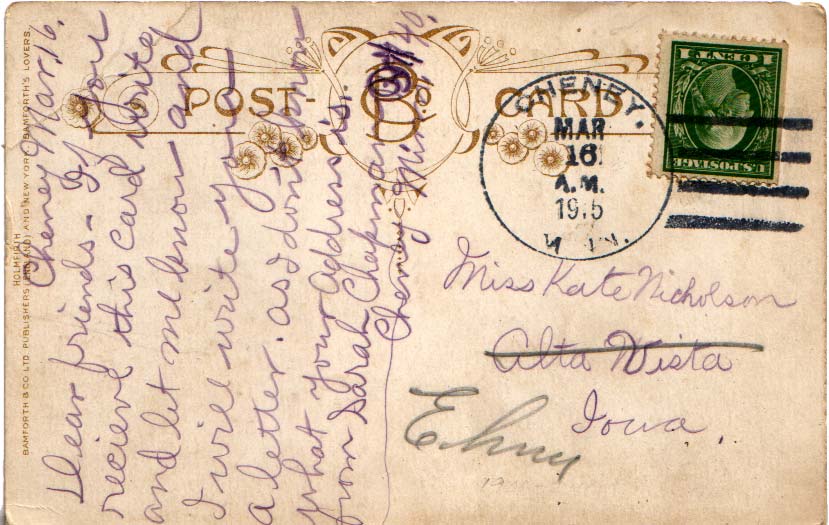 POST-CARD
Cheney Mar. 16.
Dear friends - If you
recieve this card write
and let me know and
I will write you
a letter. as I don't know
what your address is.
from Sarah Chapman
Cheney Minn
BAMFORTH & CO LTD. PUBLISHERS (ENGLAND) AND NEW YORK
HOLMFIRTH
BAMFORTH'S LOVERS.
CHENEY.
MAR
16
A.M.
1915
U.S. POSTAGE
1 CENT 1
Miss Kate Nicholson
Alta Vista
Iowa.